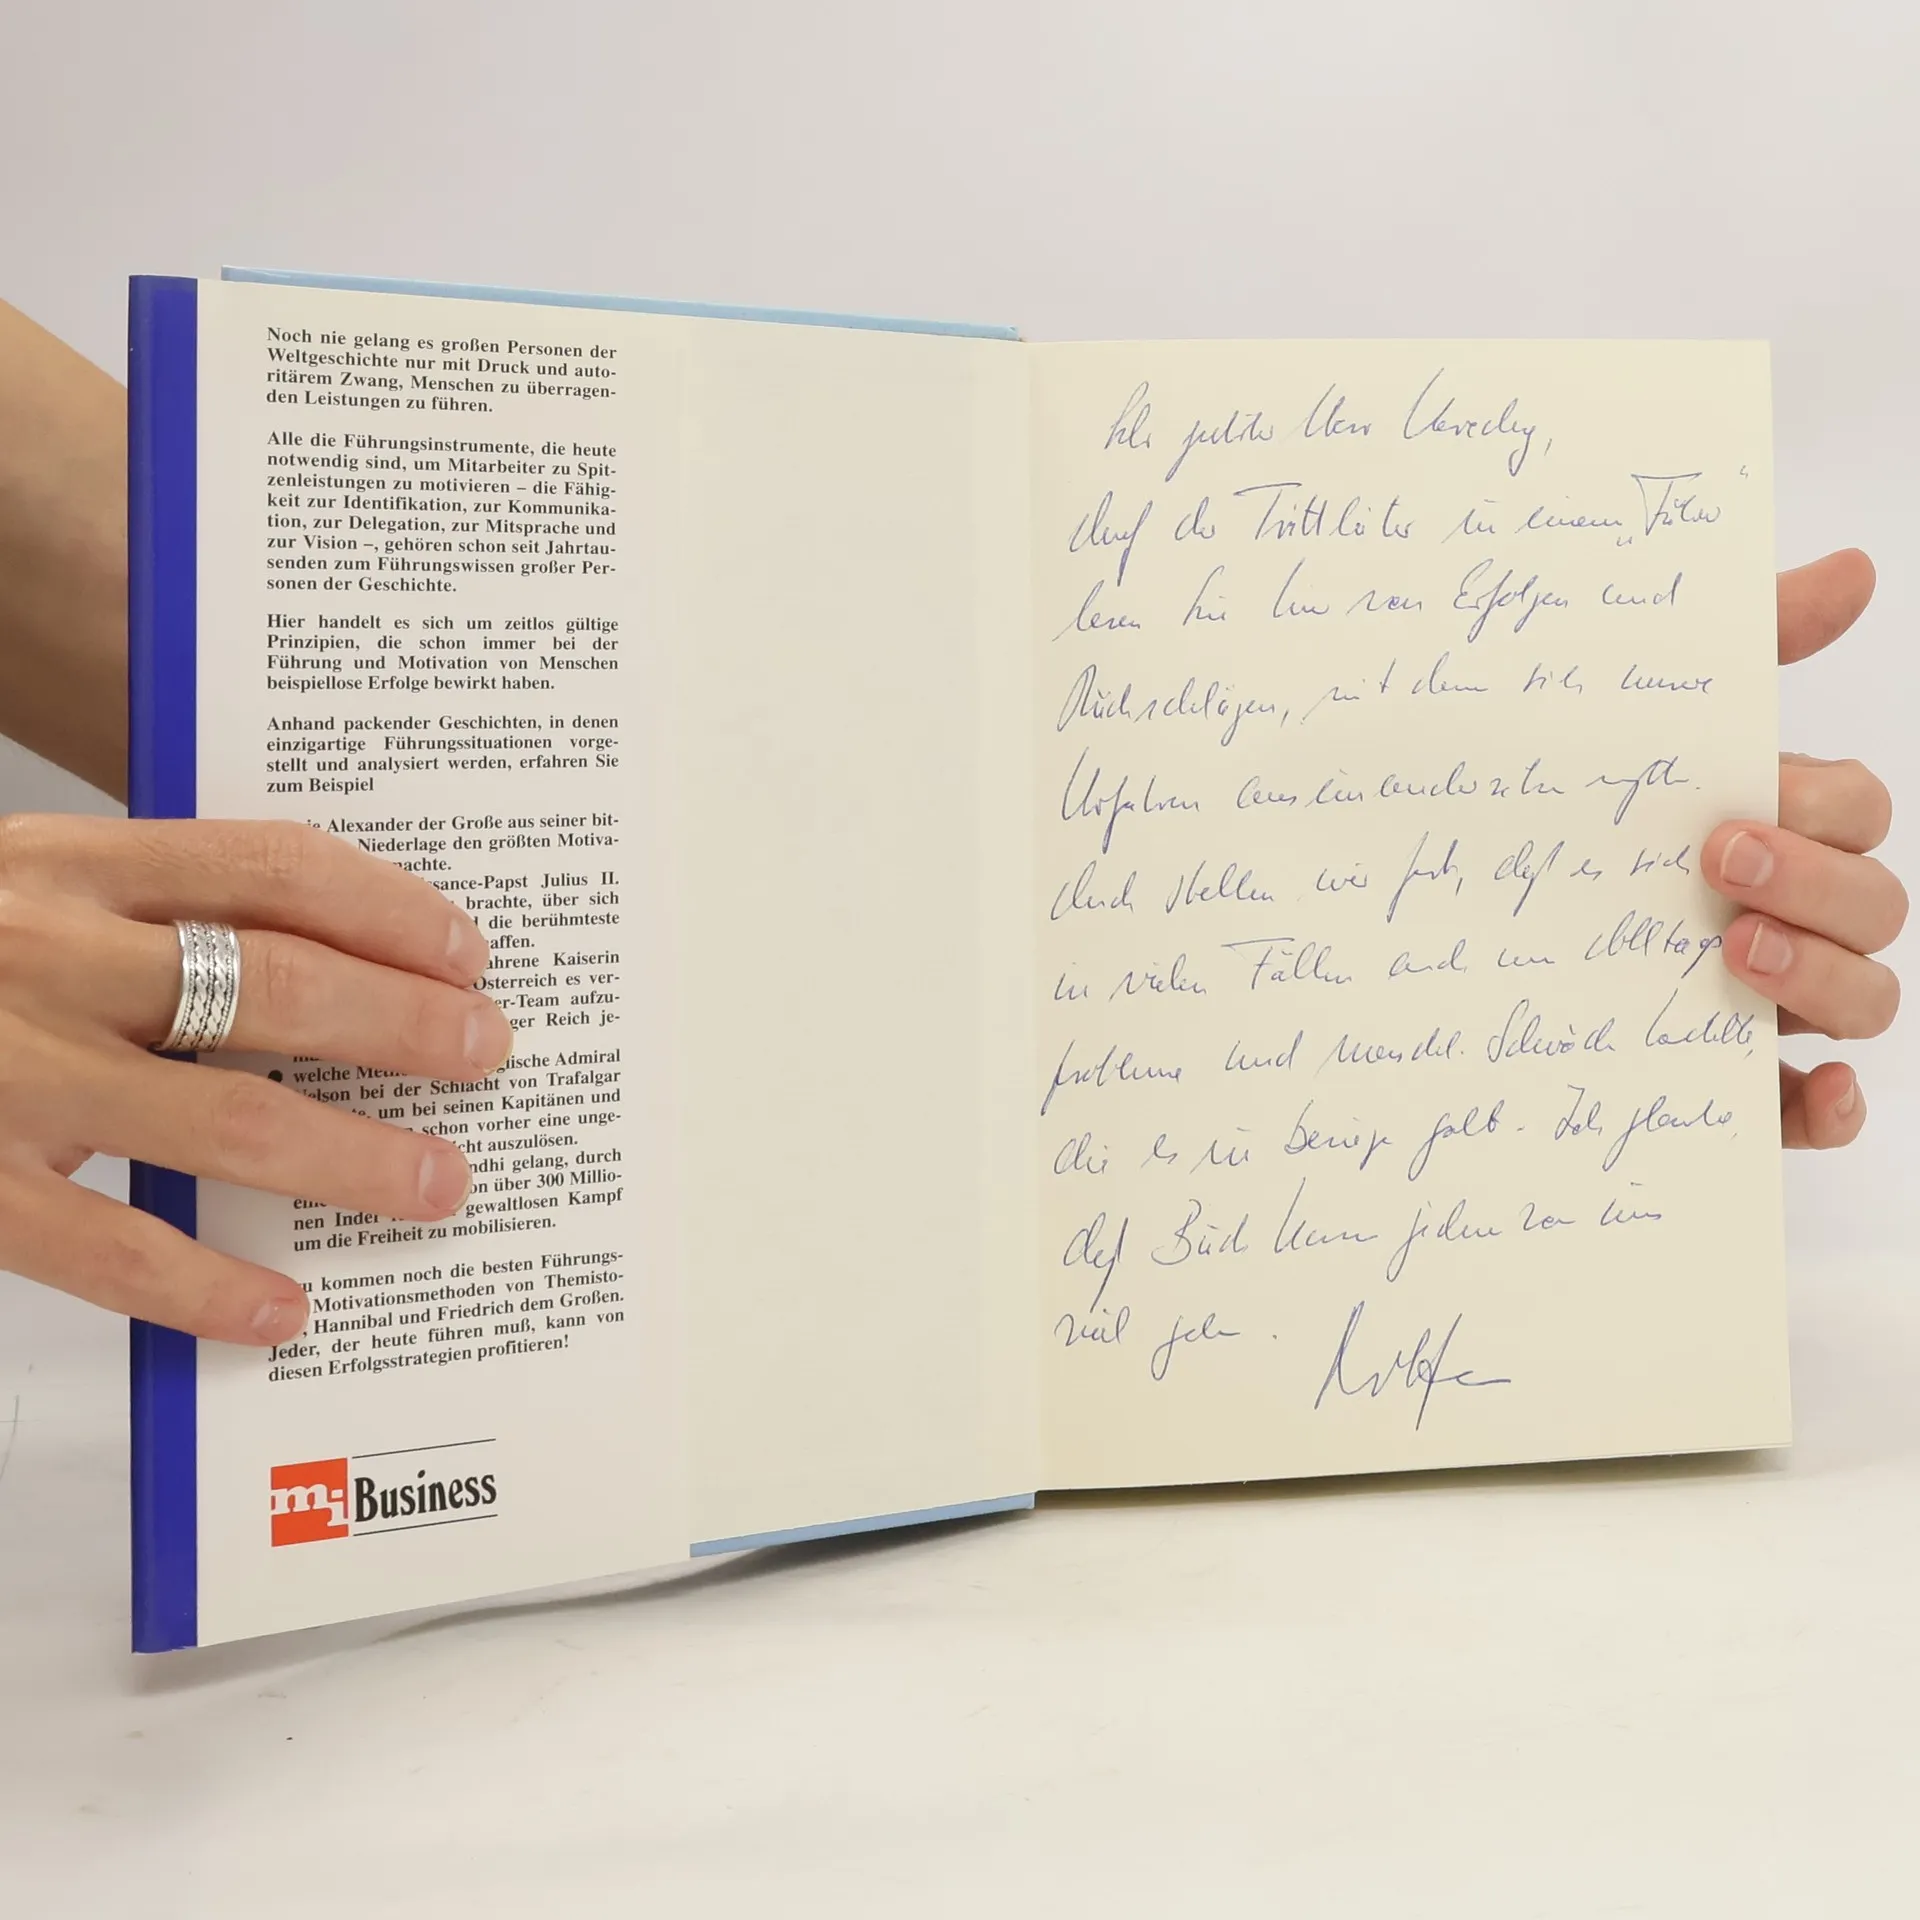 Noch nie gelang es großen Personen der
Weltgeschichte nur mit Druck und auto-
ritärem Zwang, Menschen zu überragen-
den Leistungen zu führen.
Alle die Führungsinstrumente, die heute
notwendig sind, um Mitarbeiter zu Spit-
zenleistungen zu motivieren – die Fähig-
keit zur Identifikation, zur Kommunika-
tion, zur Delegation, zur Mitsprache und
zur Vision –, gehören schon seit Jahrtau-
senden zum Führungswissen großer Per-
sonen der Geschichte.
Hier handelt es sich um zeitlos gültige
Prinzipien, die schon immer bei der
Führung und Motivation von Menschen
beispiellose Erfolge bewirkt haben.
Anhand packender Geschichten, in denen
einzigartige Führungssituationen vorge-
stellt und analysiert werden, erfahren Sie
zum Beispiel
Alexander der Große aus seiner bit-
Niederlage den größten Motiva-
achte.
sance-Papst Julius II.
brachte, über sich
die berühmteste
affen.
ahrene Kaiserin
Österreich es ver-
er-Team aufzu-
ger Reich je-
lische Admiral
welche
elson bei der Schlacht von Trafalgar
um bei seinen Kapitänen und
schon vorher eine unge-
cht auszulösen.
ndhi gelang, durch
on über 300 Millio-
nen Inder gewaltlosen Kampf
um die Freiheit zu mobilisieren.
u kommen noch die besten Führungs-
Motivationsmethoden von Themisto-
, Hannibal und Friedrich dem Großen.
Jeder, der heute führen muß, kann von
diesen Erfolgsstrategien profitieren!
mi Business
Sehr geehrter Herr
auf der Trittleiter zu einem „Führer“
lesen Sie hier von Erfolgen und
Rückschlägen, mit denen sich unsere
Vorfahren auseinandersetzen mußten.
Auch stellen wir fest, daß es sich
in vielen Fällen auch um Alltags
probleme und menschl. Schwäche handelte,
die es zu besiegen galt. Ich glaube,
daß Buch kann jedem von uns
viel geben.